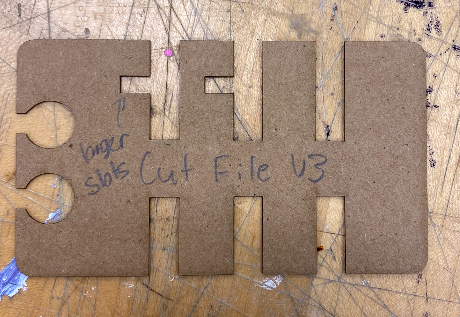 larger
slots
Cut File V3